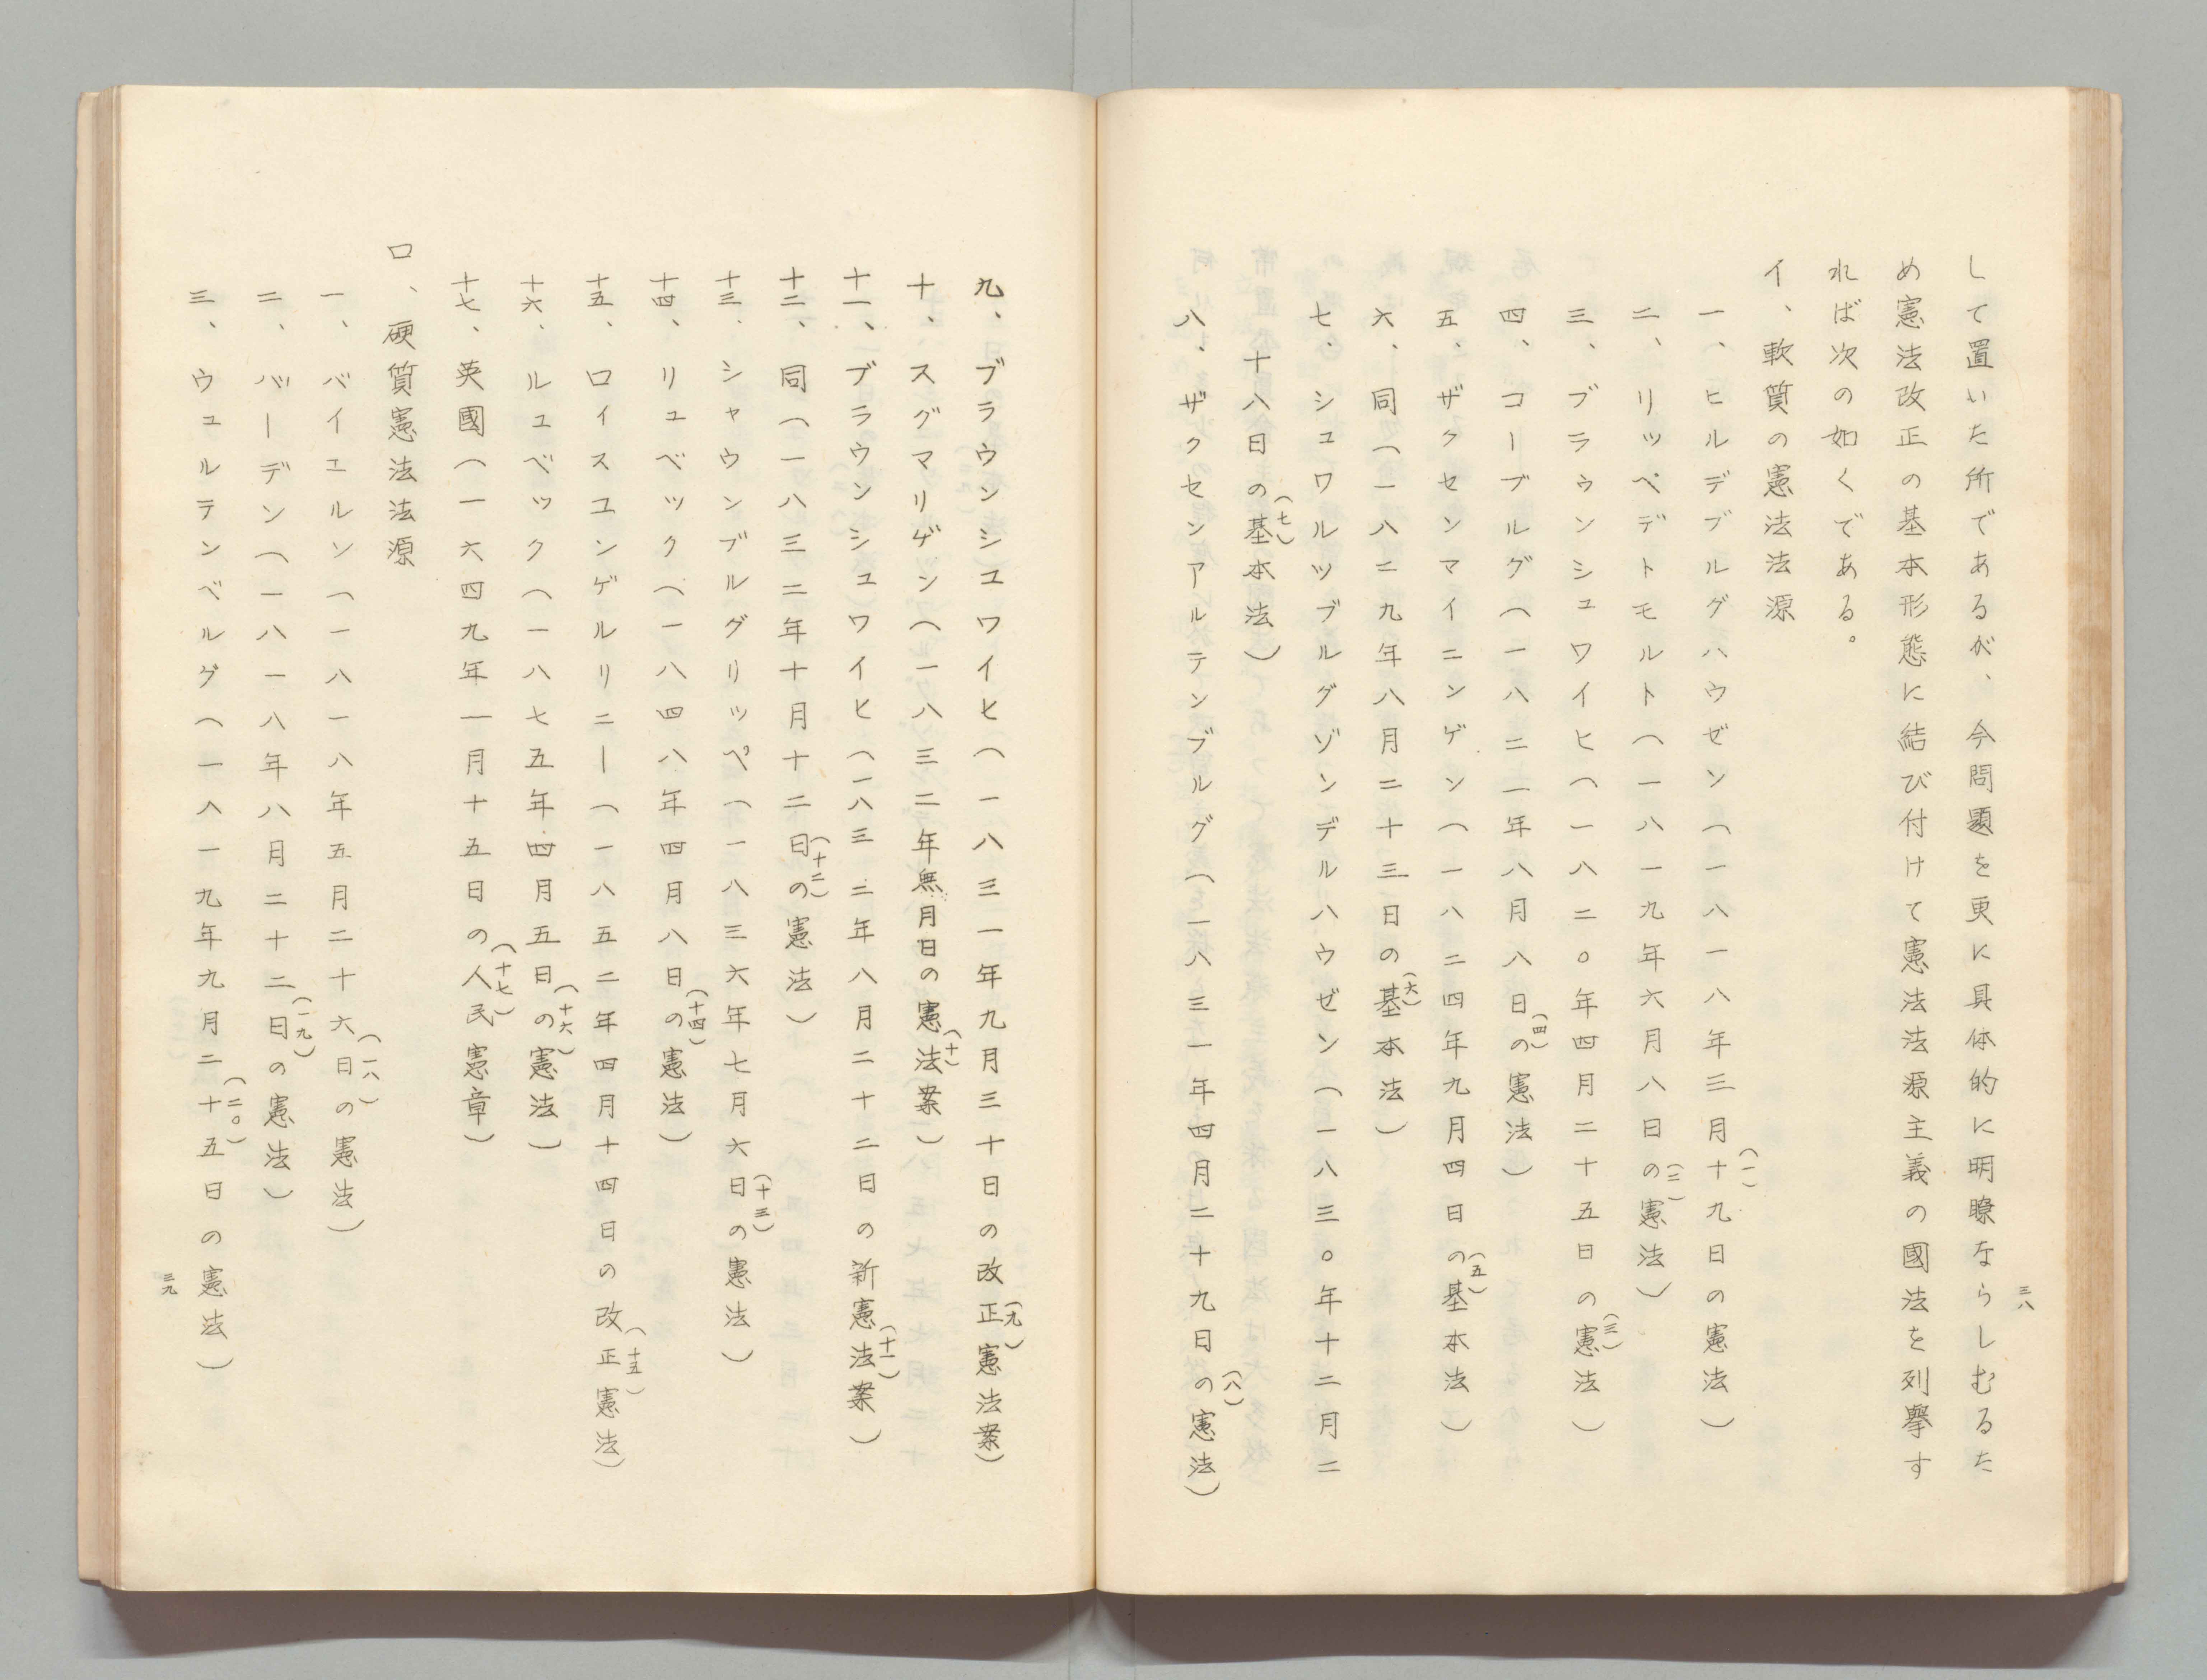 三八
して置いた所であるが、今問題を更に具体的に明瞭ならしむるた
め憲法改正の基本形態に結び付けて憲法法源主義の國法を列擧す
れば次の如くである。
イ、軟質の憲法法源
一、ヒルデブルグハウゼン(一八一八年三月十九日の憲法)(一)
二、リッペデトモルト(一八一九年六月八日の憲法)(二)
三、ブラウンシュワイヒ(一八二〇年四月二十五日の憲法)(三)
四、コーブルグ(一八二一年八月八日の憲法)(四)
五、ザクセンマイニンゲン(一八二四年九月四日の基本法)(五)
六、同(一八二九年八月二十三日の基本法)(六)
七、シュワルツブルグゾンデルハウゼン(一八三〇年十二月二
十八日の基本法)(七)
八、ザクセンアルテンブルグ(一八三一年四月二十九日の憲法)(八)
九、ブラウンシユワイヒ(一八三一年九月三十日の改正憲法案)(九)
十、スグマリゲン(一八三二年無月日の憲法案)(十)
十一、ブラウンシュワイヒ(一八三二年八月二十二日の新憲法案)(十一)
十二、同(一八三二年十月十二日の憲法)(十二)
十三、シャウンブルグリッペ(一八三六年七月六日の憲法)(十三)
十四、リュベック(一八四八年四月八日の憲法)(十四)
十五、ロイスユンゲルリニー(一八五二年四月十四日の改正憲法)(十五)
十六、ルュベック(一八七五年四月五日の憲法)(十六)
十七、英國(一六四九年一月十五日の人民憲章)(十七)
ロ、硬質憲法法源
一、バイエルン(一八一八年五月二十六日の憲法)(一八)
二、バーデン(一八一八年八月二十二日の憲法)(一九)
三、ウュルテンベルグ(一八一九年九月二十五日の憲法)(二〇)
三九